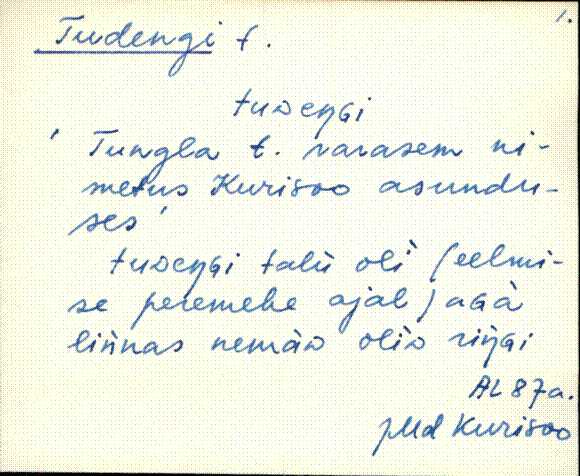 1.
Tudengi t.
tuᴅeŋɢi
' Tungla t. varasem ni-
metus Kurisoo asundu-
ses'
tuᴅeŋɢi talu̬ oli̬ (eelmi-
se peremehe ajal) aɢà
liǹnas nemàᴅ oliᴅ riŋ̀ɢi
AL 87a.
JMd Kurisoo